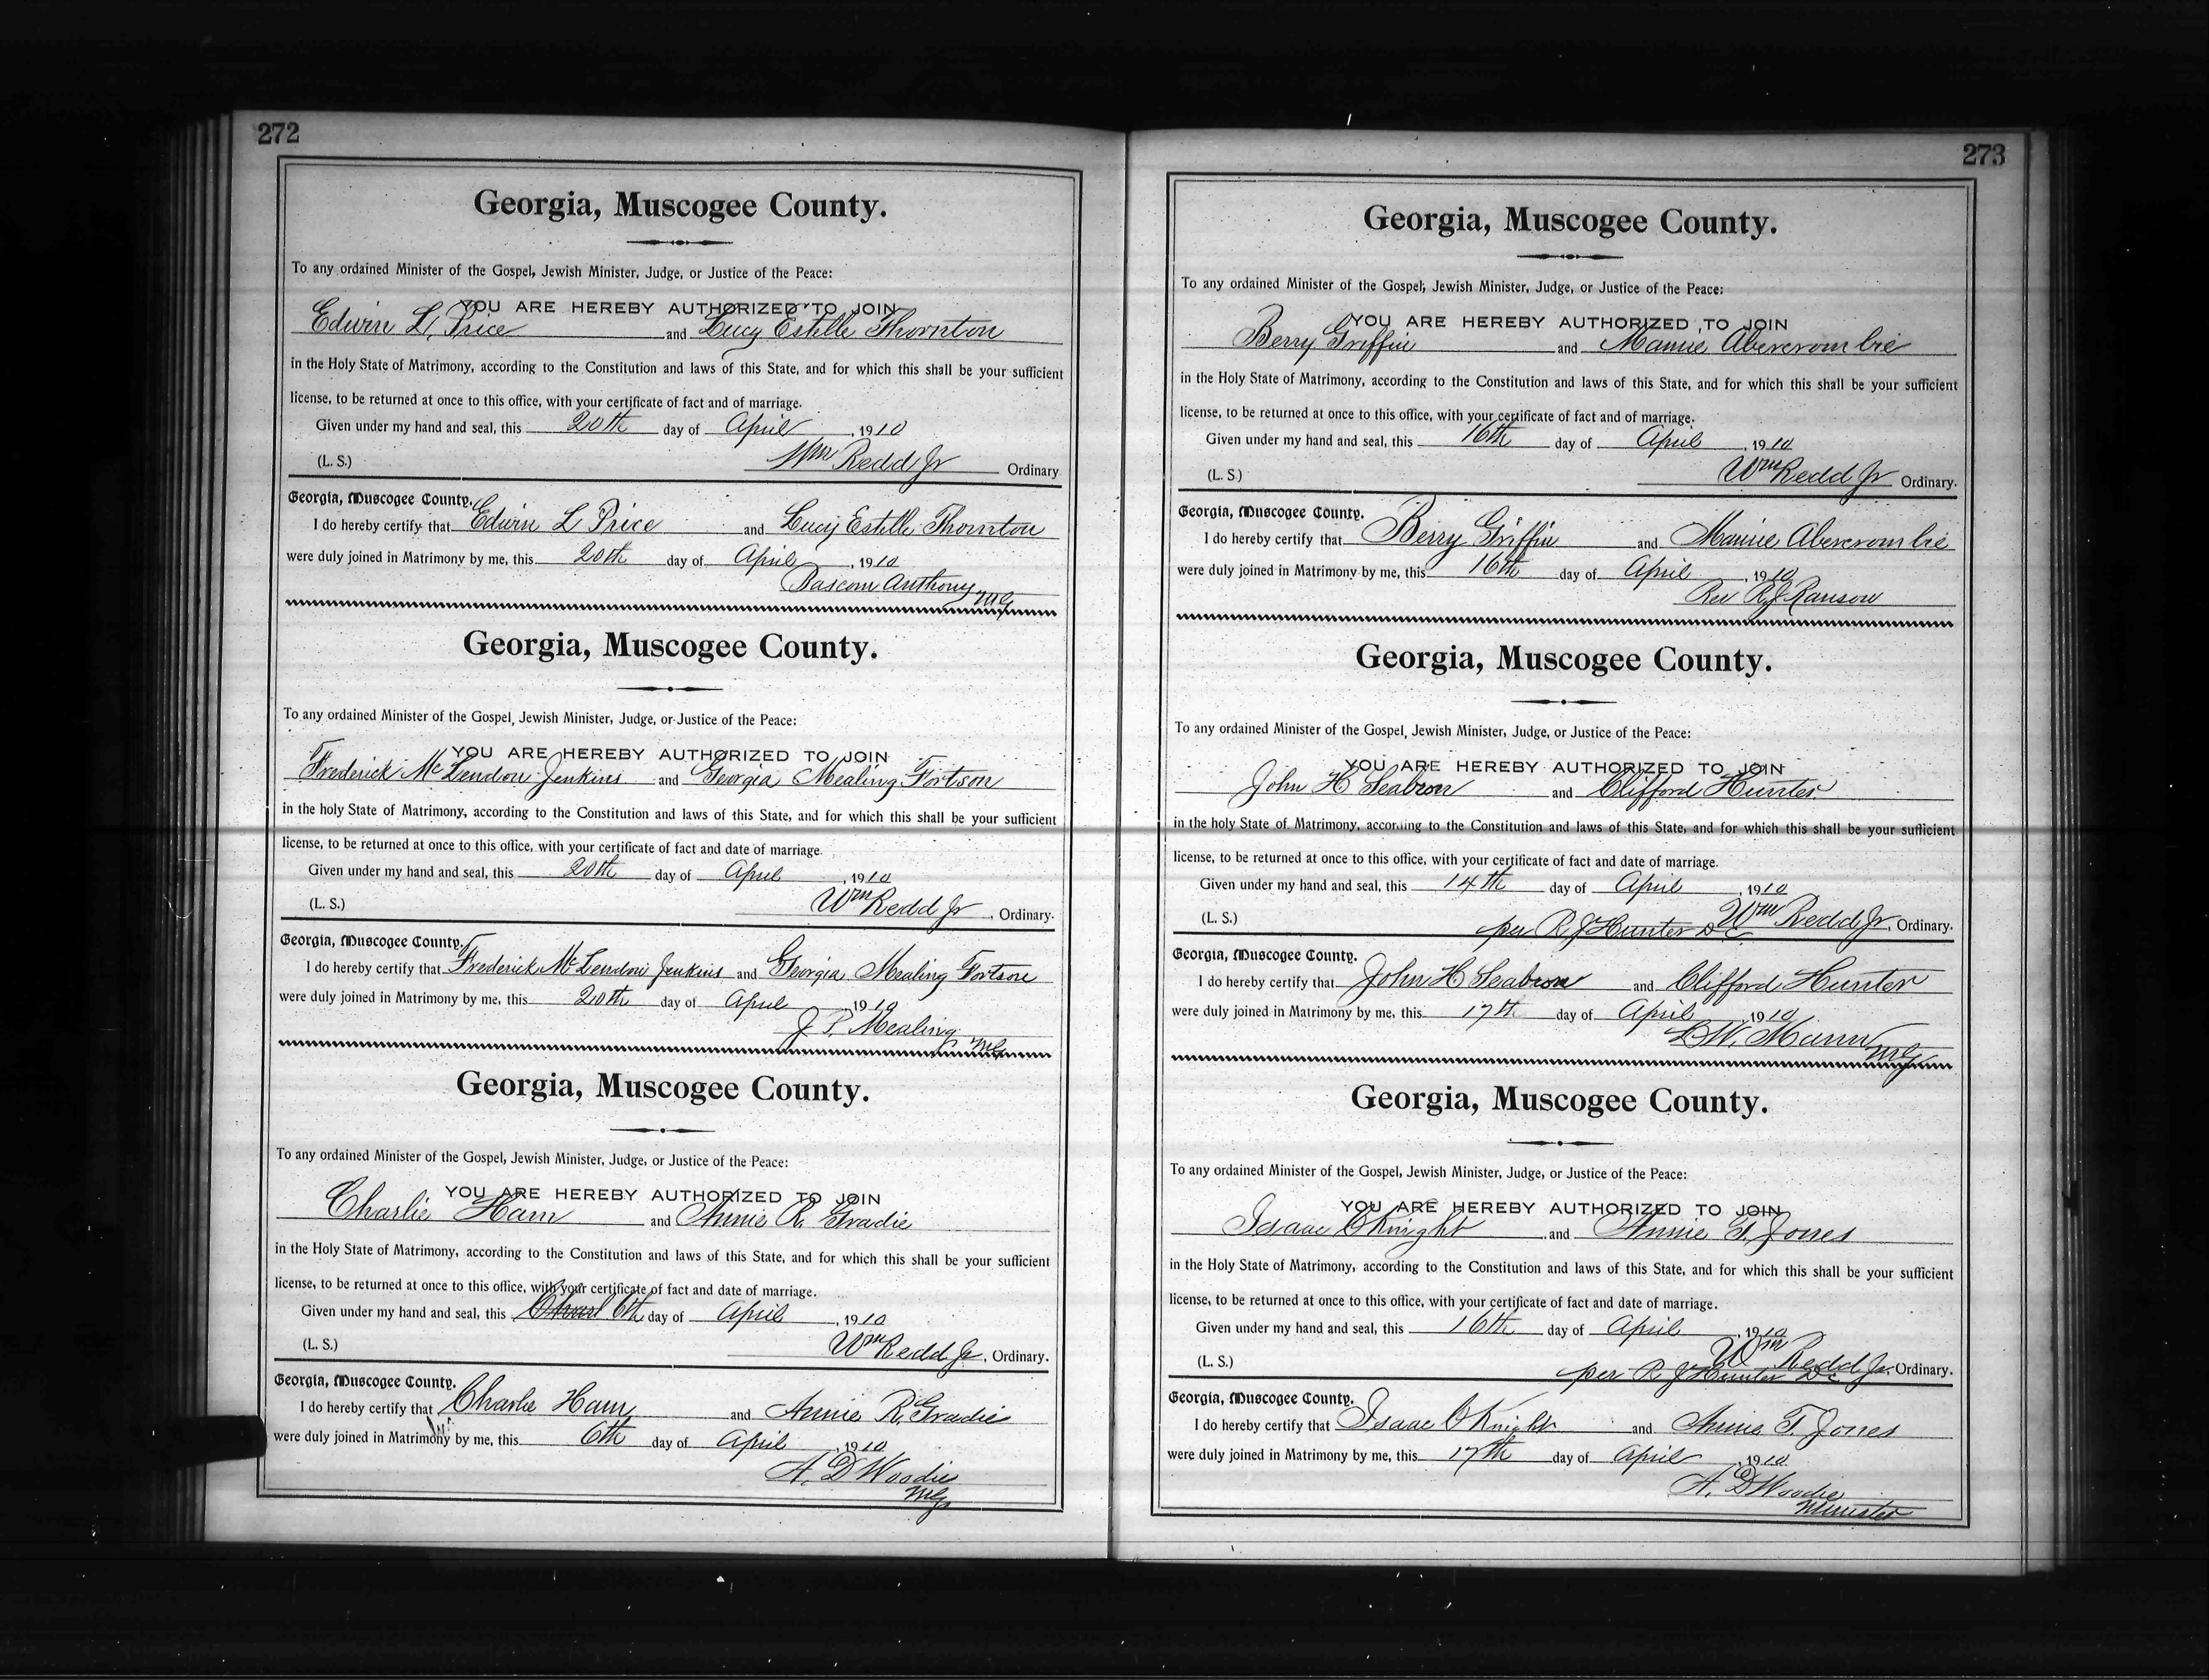 272
Georgia, Muscogee County.
To any ordained Minister of the Gospel, Jewish Minister, Judge, or Justice of the Peace:
YOU ARE HEREBY AUTHORIZED TO JOIN
Edwin L. Price and Lucy Estelle Thornton
in the Holy State of Matrimony, according to the Constitution and laws of this State, and for which this shall be your sufficient
license, to be returned at once to this office, with your certificate of fact and of marriage.
Given under my hand and seal, this 20th day of April, 1910
Wm Redd Jr
(L. S.) Ordinary.
Georgia, Muscogee County.
I do hereby certify that Edwin L Price and Lucy Estelle Thornton
were duly joined in Matrimony by me, this 20th day of April, 1910
Bascom Anthony MG
Georgia, Muscogee County.
To any ordained Minister of the Gospel, Jewish Minister, Judge, or Justice of the Peace:
YOU ARE HEREBY AUTHORIZED TO JOIN
Frederick McLendon Jenkins and Georgia Mealing Fortson
in the holy State of Matrimony, according to the Constitution and laws of this State, and for which this shall be your sufficient
license, to be returned at once to this office, with your certificate of fact and date of marriage.
Given under my hand and seal, this 20th day of April, 1910
(L. S.) Wm Redd Jr, Ordinary.
Georgia, Muscogee County.
I do hereby certify that Frederick McLendon Jenkins and Georgia Mealing Fortson
were duly joined in Matrimony by me, this 20th day of April, 1910
J. P. Mealing MG
Georgia, Muscogee County.
To any ordained Minister of the Gospel, Jewish Minister, Judge, or Justice of the Peace:
YOU ARE HEREBY AUTHORIZED TO JOIN
Charlie Ham and Annie R. Gradie
in the Holy State of Matrimony, according to the Constitution and laws of this State, and for which this shall be your sufficient
license, to be returned at once to this office, with your certificate of fact and date of marriage.
Given under my hand and seal, this 6th day of April, 1910
(L. S.) Wm Redd Jr, Ordinary.
Georgia, Muscogee County.
I do hereby certify that Charlie Ham and Annie R. Gradie
were duly joined in Matrimony by me, this 6th day of April, 1910
A. D Woodie
MG
273
Georgia, Muscogee County.
To any ordained Minister of the Gospel, Jewish Minister, Judge, or Justice of the Peace:
YOU ARE HEREBY AUTHORIZED TO JOIN
Berry Griffin and Mamie Abercrombie
in the Holy State of Matrimony, according to the Constitution and laws of this State, and for which this shall be your sufficient
license, to be returned at once to this office, with your certificate of fact and of marriage.
Given under my hand and seal, this 16th day of April, 1910
(L. S.) Wm Redd Jr Ordinary.
Georgia, Muscogee County.
I do hereby certify that Berry Griffin and Mamie Abercrombie
were duly joined in Matrimony by me, this 16th day of April, 1910
Rev R J Ranson
Georgia, Muscogee County.
To any ordained Minister of the Gospel, Jewish Minister, Judge, or Justice of the Peace:
YOU ARE HEREBY AUTHORIZED TO JOIN
John H Seabron and Clifford Hunter
in the holy State of Matrimony, according to the Constitution and laws of this State, and for which this shall be your sufficient
license, to be returned at once to this office, with your certificate of fact and date of marriage.
Given under my hand and seal, this 14th day of April, 1910
(L. S.) per R J Hunter DC Wm Redd Jr, Ordinary.
Georgia, Muscogee County.
I do hereby certify that John H Seabron and Clifford Hunter
were duly joined in Matrimony by me, this 17th day of April, 1910
W. Mann MG
Georgia, Muscogee County.
To any ordained Minister of the Gospel, Jewish Minister, Judge, or Justice of the Peace:
YOU ARE HEREBY AUTHORIZED TO JOIN
Isaac C Knight and Annie T. Jones
in the Holy State of Matrimony, according to the Constitution and laws of this State, and for which this shall be your sufficient
license, to be returned at once to this office, with your certificate of fact and date of marriage.
Given under my hand and seal, this 16th day of April, 1910
Wm Redd Jr
(L. S.) per R J Hunter DC Ordinary.
Georgia, Muscogee County.
I do hereby certify that Isaac C Knight and Annie T. Jones
were duly joined in Matrimony by me, this 17th day of April, 1910
A. D Woodie
Minister